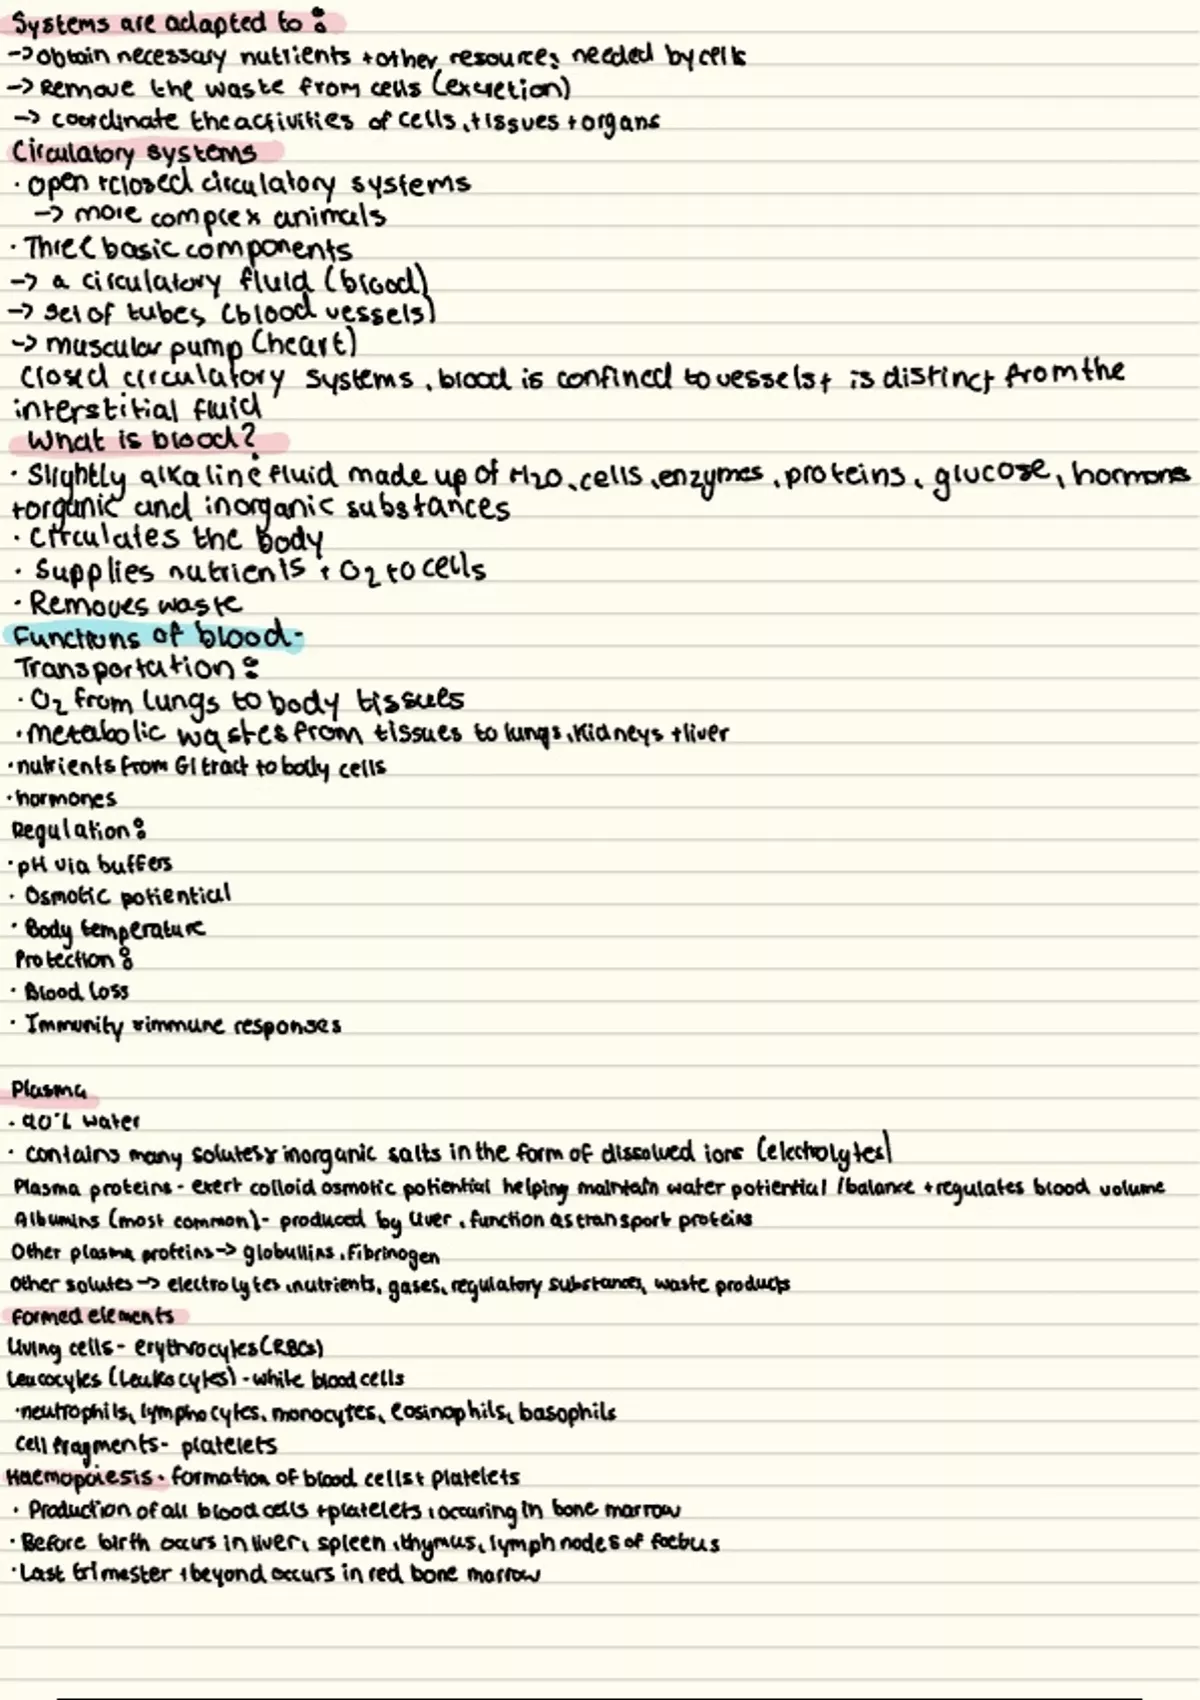 Systems are adapted to:
-> obtain necessary nutrients + other resources needed by cells
-> Remove the waste from cells (excretion)
-> coordinate the activities of cells, tissues + organs
Circulatory systems
· open + closed circulatory systems
-> more complex animals
· Three basic components
-> a circulatory fluid (blood)
-> set of tubes (blood vessels)
-> muscular pump (heart)
Closed circulatory systems, blood is confined to vessels + is distinct from the
interstitial fluid
What is blood?
· Slightly alkaline fluid made up of H2O, cells, enzymes, proteins, glucose, hormones
+organic and inorganic substances
· Circulates the body
· Supplies nutrients + O2 to cells
· Removes waste
Functions of blood-
Transportation:
· O2 from lungs to body tissues
· metabolic wastes from tissues to lungs, kidneys + liver
· nutrients from GI tract to body cells
· hormones
Regulation:
· pH via buffers
· Osmotic potiential
· Body temperature
Protection:
· Blood loss
· Immunity + immune responses
Plasma
· 90% water
· contains many solutes + inorganic salts in the form of dissolved ions (electrolytes)
Plasma proteins - exert colloid osmotic potiential helping maintain water potiential / balance + regulates blood volume
Albumins (most common) - produced by liver, function as transport proteins
Other plasma proteins -> globullins, Fibrinogen
Other solutes -> electrolytes, nutrients, gases, regulatory substances, waste products
Formed elements
Living cells - erythrocytes (RBCs)
Leucocytes (Leukocytes) - white blood cells
· neutrophils, lymphocytes, monocytes, eosinophils, basophils
Cell fragments - platelets
Haemopoiesis · formation of blood cells + platelets
· Production of all blood cells + platelets, occuring in bone marrow
· Before birth occurs in liver, spleen, thymus, lymph nodes of foetus
· Last trimester + beyond occurs in red bone marrow